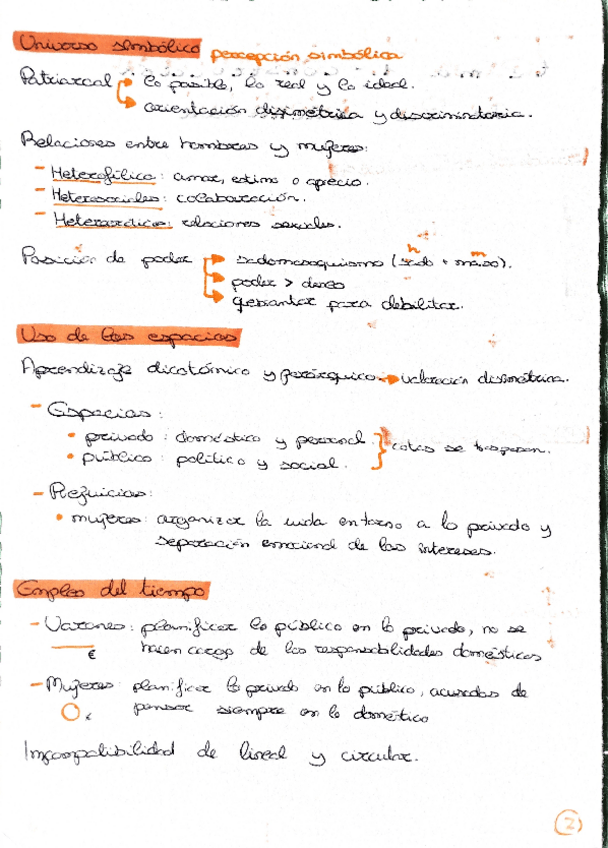 Universo simbólico percepción simbólica
Patriarcal → lo posible, lo real y lo ideal.
→ orientación disimétrica y discriminatoria.
Relaciones entre hombres y mujeres:
- Heterofílica: amor, estima o aprecio.
- Heterosociales: colaboración.
- relaciones sexuales.
Posición de poder → sadomasoquismo (sado + maso).
h m
→ poder > deseo
→ quebrantar para debilitar.
Uso de los espacios
Aprendizaje dicotómico y jerárquico → valoración disimétrica.
- Espacios:
• privado: doméstico y personal
• público: político y social. } cotos se traspasan.
- Prejuicios:
• mujeres: organizar la vida entorno a lo privado y
separación emocional de los intereses.
Empleo del tiempo
- Varones: planificar lo público en lo privado, no se
€ hacen cargo de las responsabilidades domésticas
- Mujeres: planificar lo privado en lo público, acusadas de
pensar siempre en lo doméstico
Incompatibilidad de lineal y circular.
2